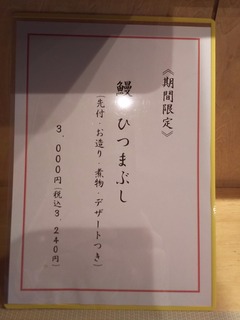 《期間限定》
鰻ひつまぶし
(先付・お造り・煮物・デザートつき)
3,000円(税込3,240円)